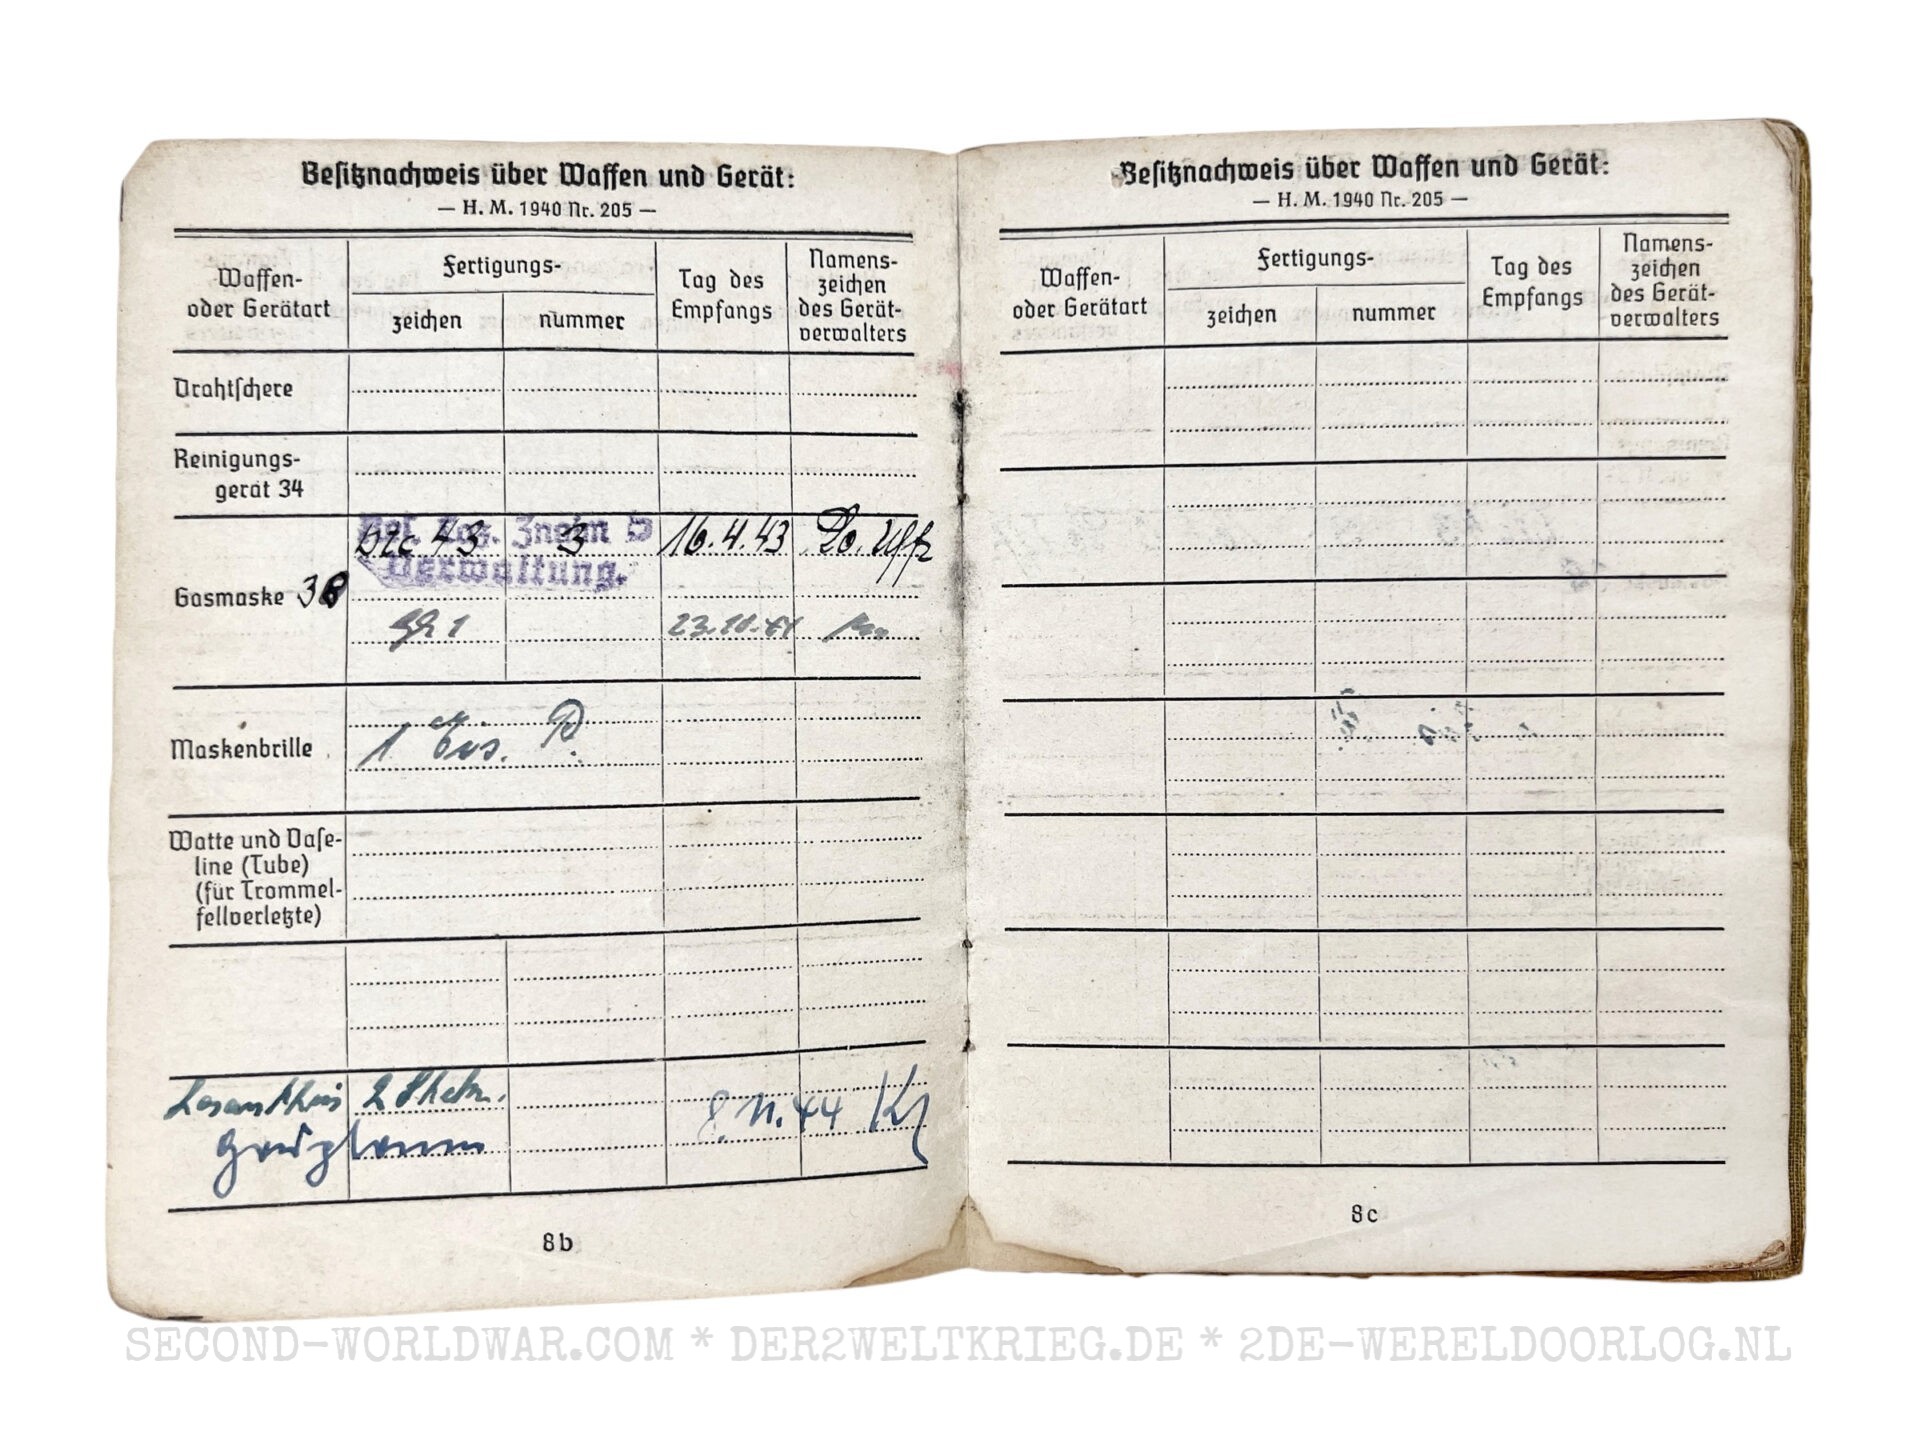 Besitznachweis über Waffen und Gerät:
— H. M. 1940 Nr. 205 —
Waffen-
oder Gerätart
Fertigungs-
zeichen
nummer
Tag des
Empfangs
Namens-
zeichen
des Gerät-
verwalters
Drahtschere
Reinigungs-
gerät 34
Verwaltung.
43 3 16.4.43 Uffz
Gasmaske 38
1
Maskenbrille
1
Watte und Vase-
line (Tube)
(für Trommel-
fellverletzte)
2
8.11.44
8b
Besitznachweis über Waffen und Gerät:
— H. M. 1940 Nr. 205 —
Waffen-
oder Gerätart
Fertigungs-
zeichen
nummer
Tag des
Empfangs
Namens-
zeichen
des Gerät-
verwalters
8c
SECOND-WORLDWAR.COM * DER2WELTKRIEG.DE * 2DE-WERELDOORLOG.NL